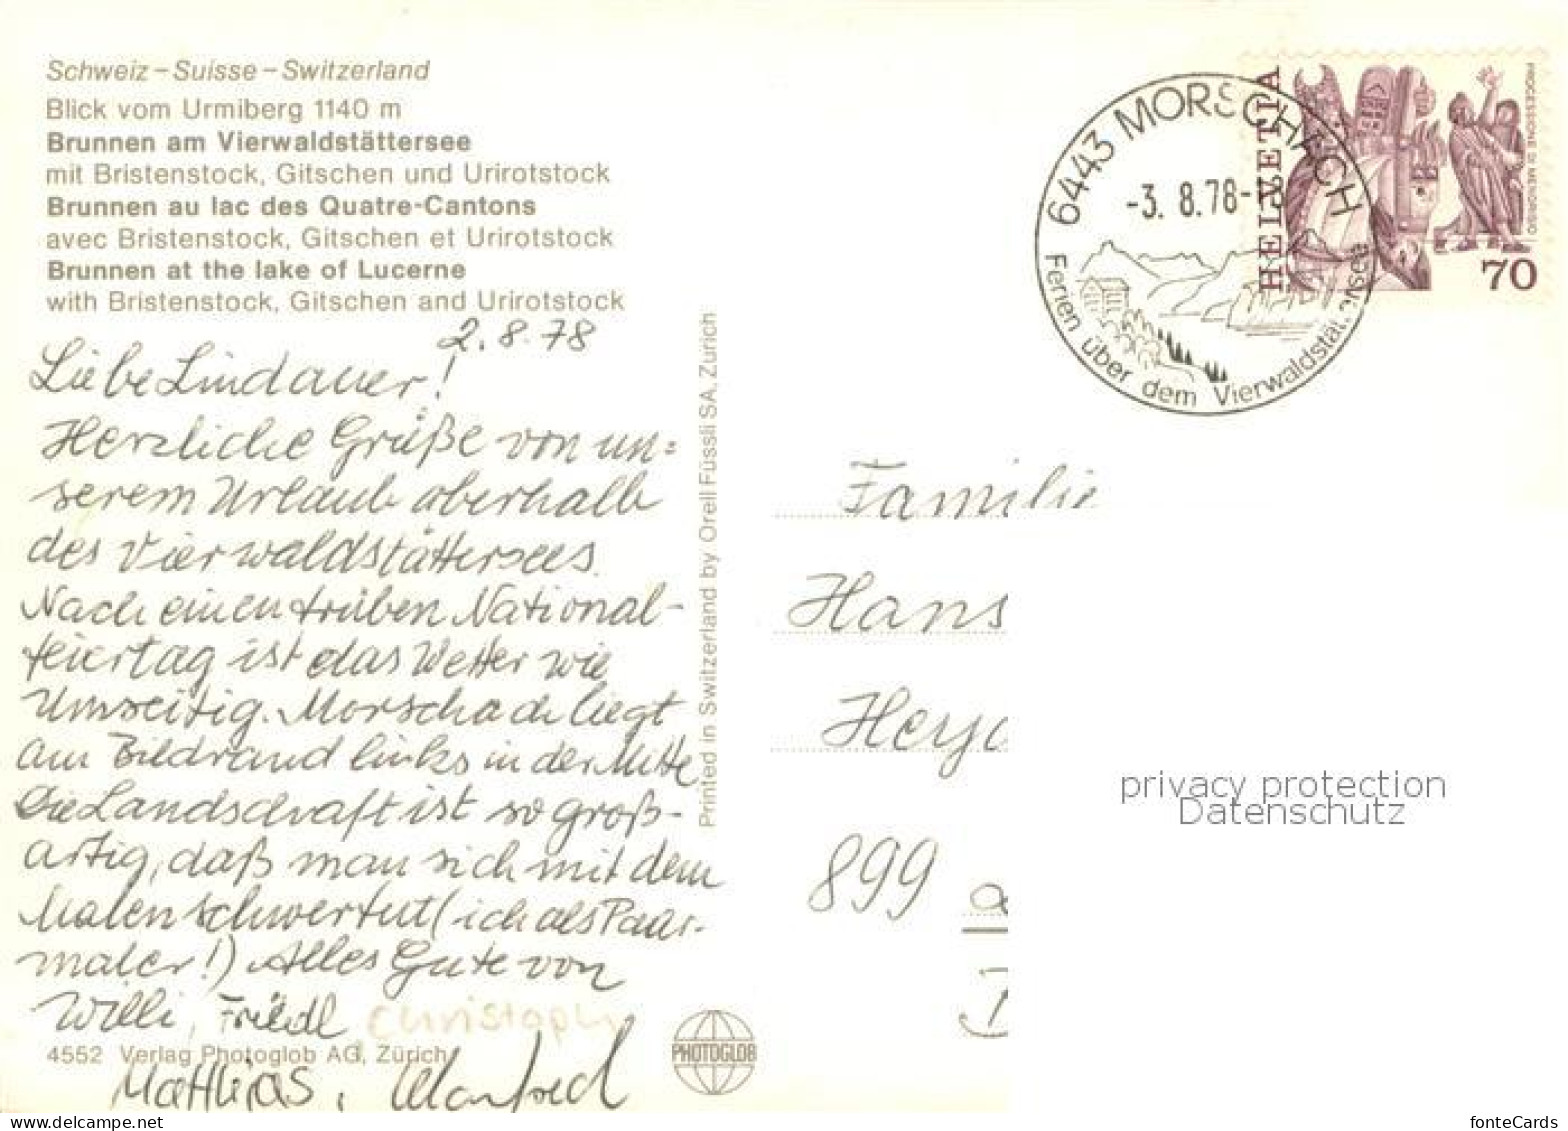 Schweiz – Suisse – Switzerland
Blick vom Urmiberg 1140 m
Brunnen am Vierwaldstättersee
mit Bristenstock, Gitschen und Urirotstock
Brunnen au lac des Quatre-Cantons
avec Bristenstock, Gitschen et Urirotstock
Brunnen at the lake of Lucerne
with Bristenstock, Gitschen and Urirotstock
2.8.78
Liebe Lindauer!
Herzliche Grüße von un=
serem Urlaub oberhalb
des Vierwaldstättersees.
Nach einem trüben National-
feiertag ist das Wetter wie
Umseitig. Morschach liegt
am Bildrand links in der Mitte
Die Landschaft ist so groß-
artig, daß man sich mit dem
Malen schwertut (ich als
maler!) Alles Gute von
Willi, Friedl, Christoph
Matthias, Manfred
4552 Verlag Photoglob AG, Zürich
Printed in Switzerland by Orell Füssli SA, Zürich
PHOTOGLOB
6443 MORSCHACH
-3. 8.78-
Ferien über dem Vierwaldstättersee
HELVETIA
PROCESSIONE DI MENDRISIO
70
Familie
Hans
899
privacy protection
Datenschutz
fonteCards